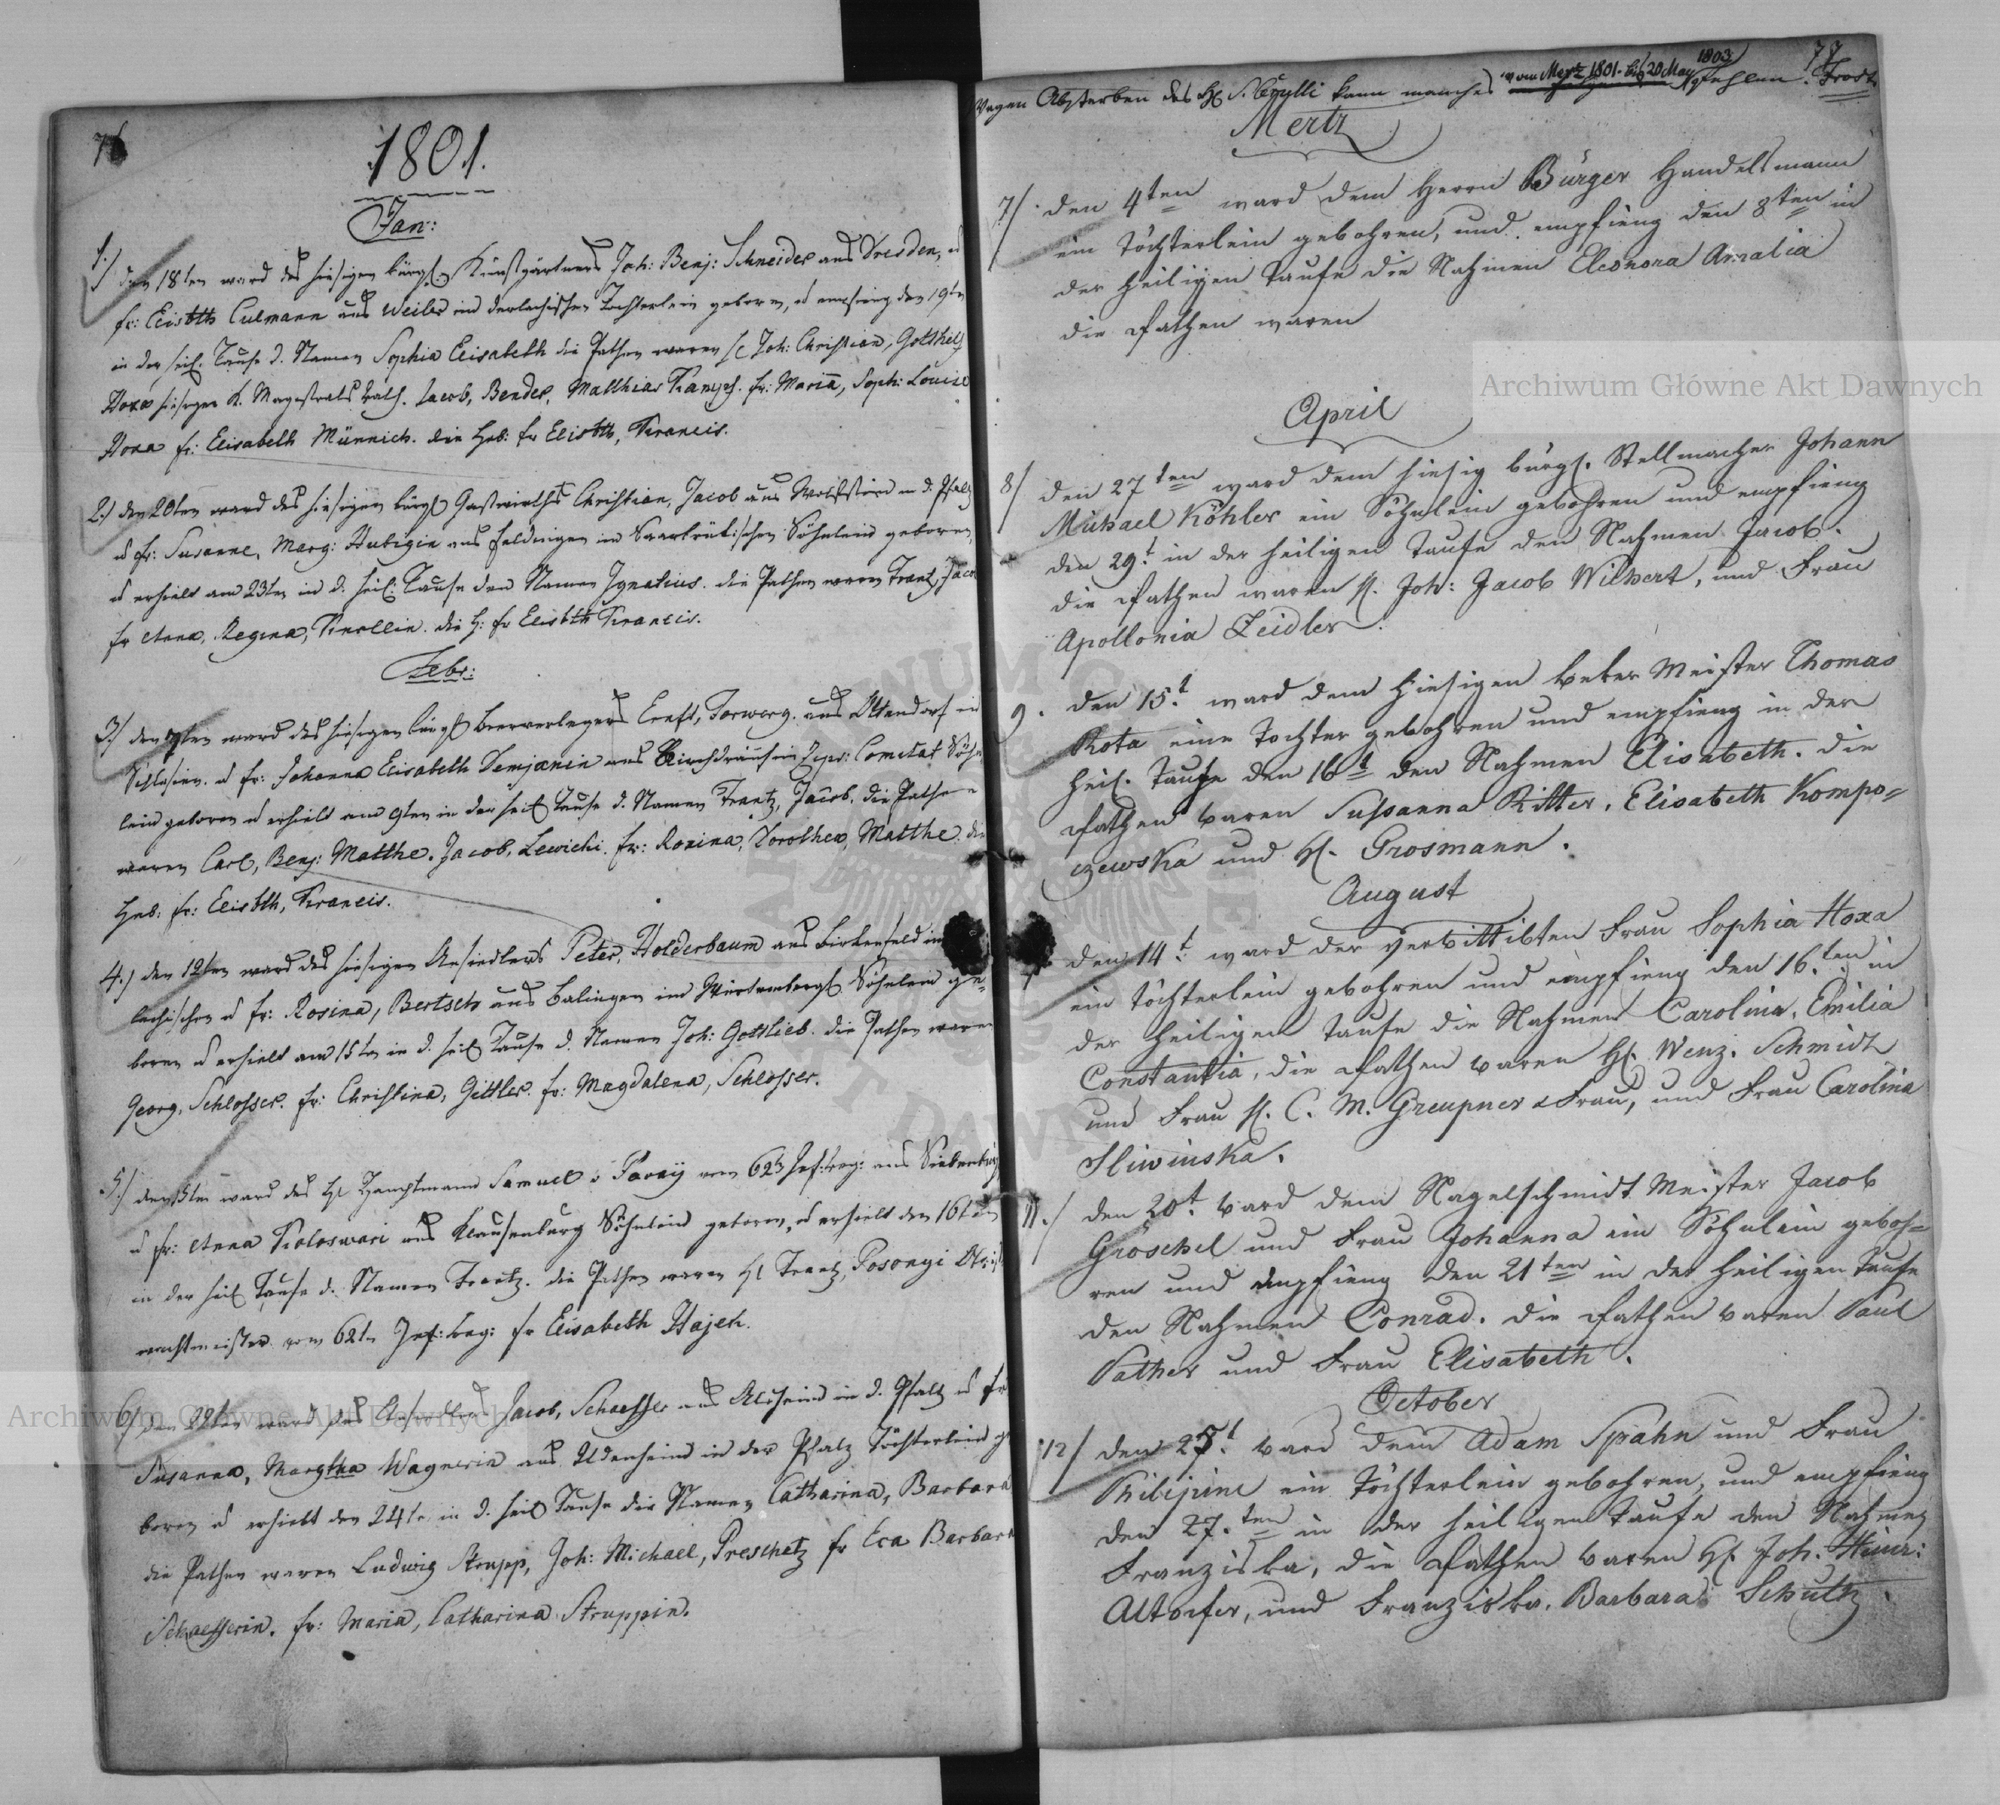 76
1801.
Jan:
1.) den 18ten ward des hiesigen bürgl. Kunstgärtners Joh: Benj: Schneider aus Dresden, u
fr: Elisbth Culmann aus Weiler im Töchterlein geboren, u empfieng den 19ten
in der heil. Taufe d. Namen Sophia Elisabeth die Pathen waren Joh: Christian, Gotthelf
Hoxa hiesiger K. Magistrats Rath. Jacob, Bender, Matthias Kampf. fr: Maria, Soph: Louise
Hoxa fr: Elisabeth Münnich. die Heb: fr Elisbth, Francis.
2.) den 20ten ward des hiesigen bürgl Gastwirths Christian, Jacob aus Wolfstein in d. Pfalz
u fr: Susanne, Marg: Hubigin aus im Saarbrükischen Söhnlein geboren,
u erhielt am 23ten in d. heil: Taufe den Namen Ignatius. die Pathen waren Frantz, Jacob
fr Anna, Regina, Knollin. die H: fr Elisbth Francis.
Febr:
3.) den 7ten ward des hiesigen bürgl Bierverlegers Ernst, Torwerg. aus Ottendorf in
Schlesien. u fr: Johanna Elisabeth Demjanin aus Kirchdrauf im Zips: Comitat Söhn
lein geboren u erhielt am 9ten in der heil Taufe d. Namen Frantz, Jacob. die Pathen
waren Carl, Benj: Matthe. Jacob, Lewicki. fr: Rosina, Dorothea, Matthe. die
Heb: fr: Elisbth, Francis.
4.) den 12ten ward des hiesigen Ansiedlers Peter, Holderbaum aus Birkenfeld im
u fr: Rosina, Bertsch aus Balingen im Würtembergl Söhnlein ge-
boren u erhielt am 15ten in d. heil Taufe d. Namen Joh: Gottlieb. die Pathen waren
Georg, Schlosser. fr: Christina, Gittler. fr: Magdalena, Schlosser.
5.) den ward des Hl Hauptmann Samuel v Pavay vom 62ten Inf: Reg: aus Siebenbürg
u fr: Anna Koloswari aus Klausenburg Söhnlein geboren, u erhielt den 16ten
in der heil Taufe d. Namen Frantz. die Pathen waren Hl Frantz, Posonyi
wachtmeister vom 62ten Inf: Reg: fr Elisabeth Hajek.
6.) den 22ten ward des Ansiedlers Jacob, Schaeffer aus in d. Pfalz u fr
Susanna, Margtha Wagnerin aus Udenheim in der Pfalz Töchterlein ge
boren u erhielt den 24te in d. heil Taufe die Namen Catharina, Barbara
die Pathen waren Ludwig Strupp, Joh: Michael, Preschetz fr Eva Barbara
Schaefferin. fr: Maria, Catharina Struppin.
77
Wegen Absterben des Hl S. kann manches vom Mertz 1801. bis 20 May 1803 fehlen. Frost.
Mertz
7/. den 4ten ward dem Herrn Bürger Handelsmann
ein Töchterlein gebohren, und empfieng den 8ten in
der heiligen Taufe die Nahmen Eleonora Amalia
die Pathen waren
April
8/ den 27ten ward dem hiesig bürgl. Stellmacher Johann
Michael Köhler ein Söhnlein gebohren und empfieng
den 29t. in der heiligen Taufe den Nahmen Jacob.
die Pathen waren H. Joh: Jacob Wichert, und Frau
Apollonia Zeidler.
9. den 15t. ward dem hiesigen Weber Meister Thomas
Rota eine Tochter gebohren und empfieng in der
heil. Taufe den 16t den Nahmen Elisabeth. die
Pathen waren Sussanna Ritter, Elisabeth Kompo=
czewska und H. Grosmann.
August
den 14t. ward der verwittibten Frau Sophia Hoxa
ein Töchterlein gebohren und empfieng den 16.ten in
der heiligen Taufe die Nahmen Carolina, Emilia
Constantia, die Pathen waren H. Wenz. Schmidt
und Frau H. C. M. Greupner u Frau, und Frau Carolina
Sliwinska.
11./ den 20t. ward dem Nagelschmidt Meister Jacob
Groschel und Frau Johanna ein Söhnlein geboh=
ren und empfieng den 21ten in der heiligen Taufe
den Nahmen Conrad. die Pathen waren Paul
Pather und Frau Elisabeth.
October
12/ den 25t. ward dem Adam Spahn und Frau
Philipine ein Töchterlein gebohren, und empfieng
den 27.ten in der heiligen Taufe den Nahmen
Franziska, die Pathen waren H. Joh. Heinr:
Altorfer, und Franziska, Barbara Schultz.
Archiwum Główne Akt Dawnych
Archiwum Główne Akt Dawnych